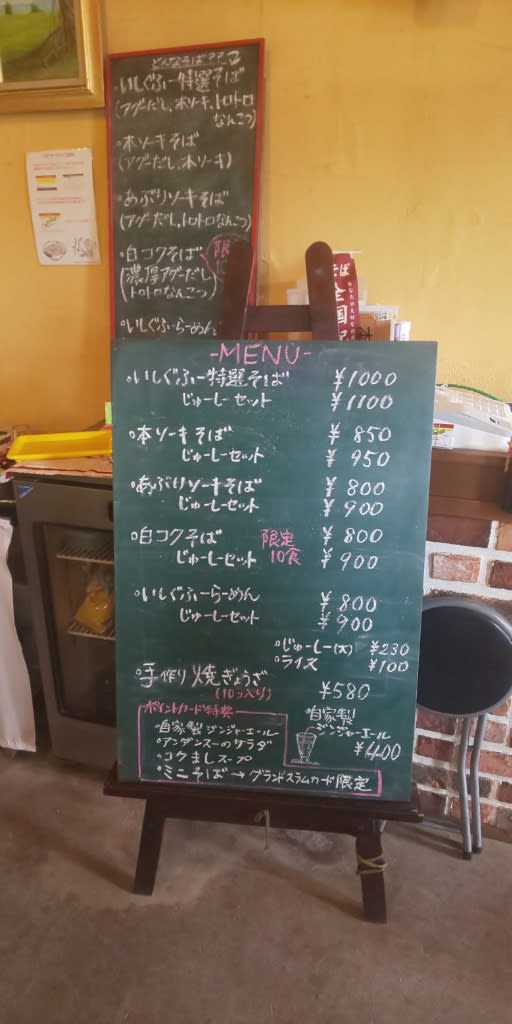 どんなそば??
・いしぐふー特選そば
(アグーだし、本ソーキ、トロトロ
なんこつ)
・本ソーキそば
(アグーだし、本ソーキ)
・あぶりソーキそば
(アグーだし、トロトロなんこつ)
・白コクそば
限
(濃厚アグーだし
トロトロなんこつ)
・いしぐふーらーめん
そば
全国
-MENU-
・いしぐふー特選そば ¥1000
じゅーしーセット ¥1100
・本ソーキそば ¥850
じゅーしーセット ¥950
・あぶりソーキそば ¥800
じゅーしーセット ¥900
・白コクそば 限定 ¥800
じゅーしーセット 10食 ¥900
・いしぐふーらーめん ¥800
じゅーしーセット ¥900
・じゅーしー(大) ¥230
・ライス ¥100
・手作り焼ぎょうざ
(10コ入り) ¥580
ポイントカード特典
・自家製ジンジャーエール
・アンダンスーのサラダ
・コクましスープ
・ミニそば→グランドスラムカード限定
・自家製
ジンジャーエール
¥400